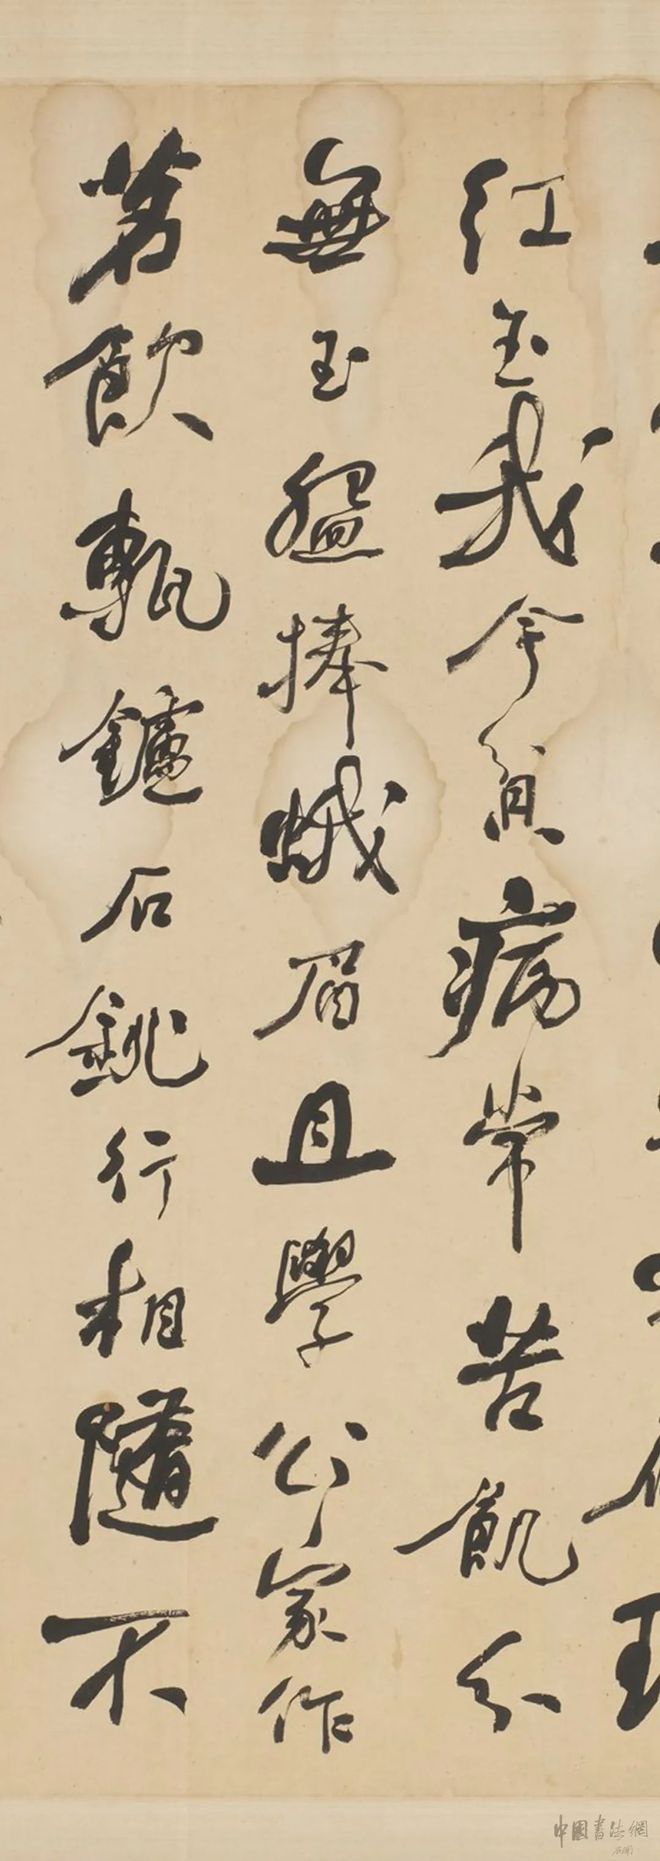 紅玉我今貧病常苦飢分
無玉盌捧蛾眉且學公家作
茗飲甎鑪石銚行相隨不
中國書法網